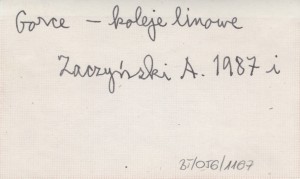 Gorce – koleje linowe
Zaczyński A. 1987 i
BT/OT6/1107